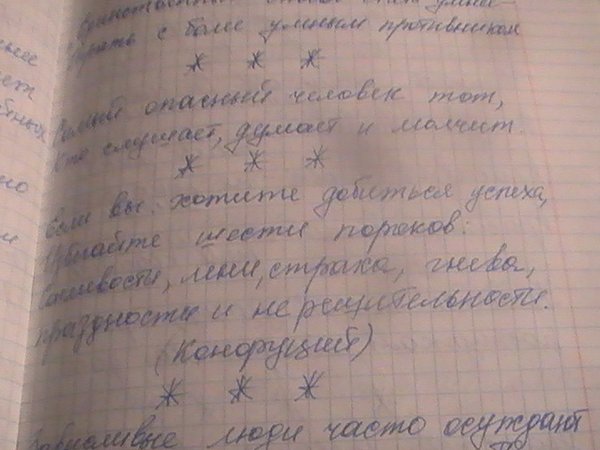 играть с более умным противником
* * *
Самый опасный человек тот,
кто слушает, думает и молчит.
* * *
Если вы хотите добиться успеха,
избегайте шести пороков:
сонливости, лени, страха, гнева,
праздности и нерешительности.
(Конфуций)
* * *
Завистливые люди часто осуждают